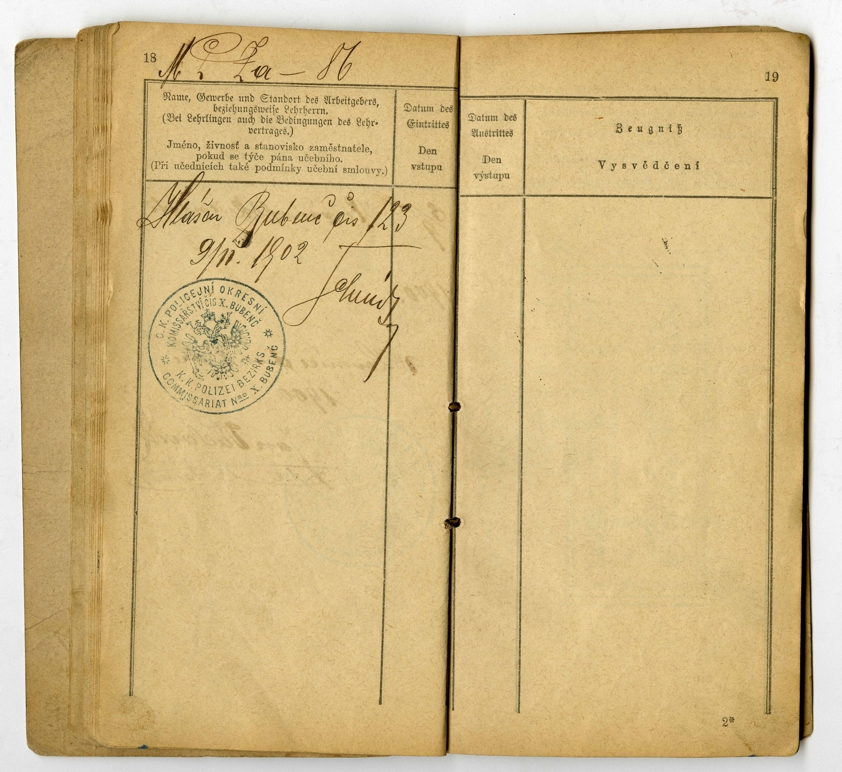 18
La – 86
Name, Gewerbe und Standort des Arbeitgebers,
beziehungsweise Lehrherrn.
(Bei Lehrlingen auch die Bedingungen des Lehr-
vertrages.)
Jméno, živnost a stanovisko zaměstnatele,
pokud se týče pána učebního.
(Při učednících také podmínky učební smlouvy.)
Datum des
Eintrittes
Den
vstupu
Hlášen Bubenč čís 123
9/11. 1902
C. K. POLICEJNÍ OKRESNÍ
KOMISSAŘSTVÍ ČÍS X. BUBENČ
K. K. POLIZEI BEZIRKS
COMMISSARIAT Nro X. BUBENČ
19
Datum des
Austrittes
Den
výstupu
Zeugniß
Vysvědčení
2*